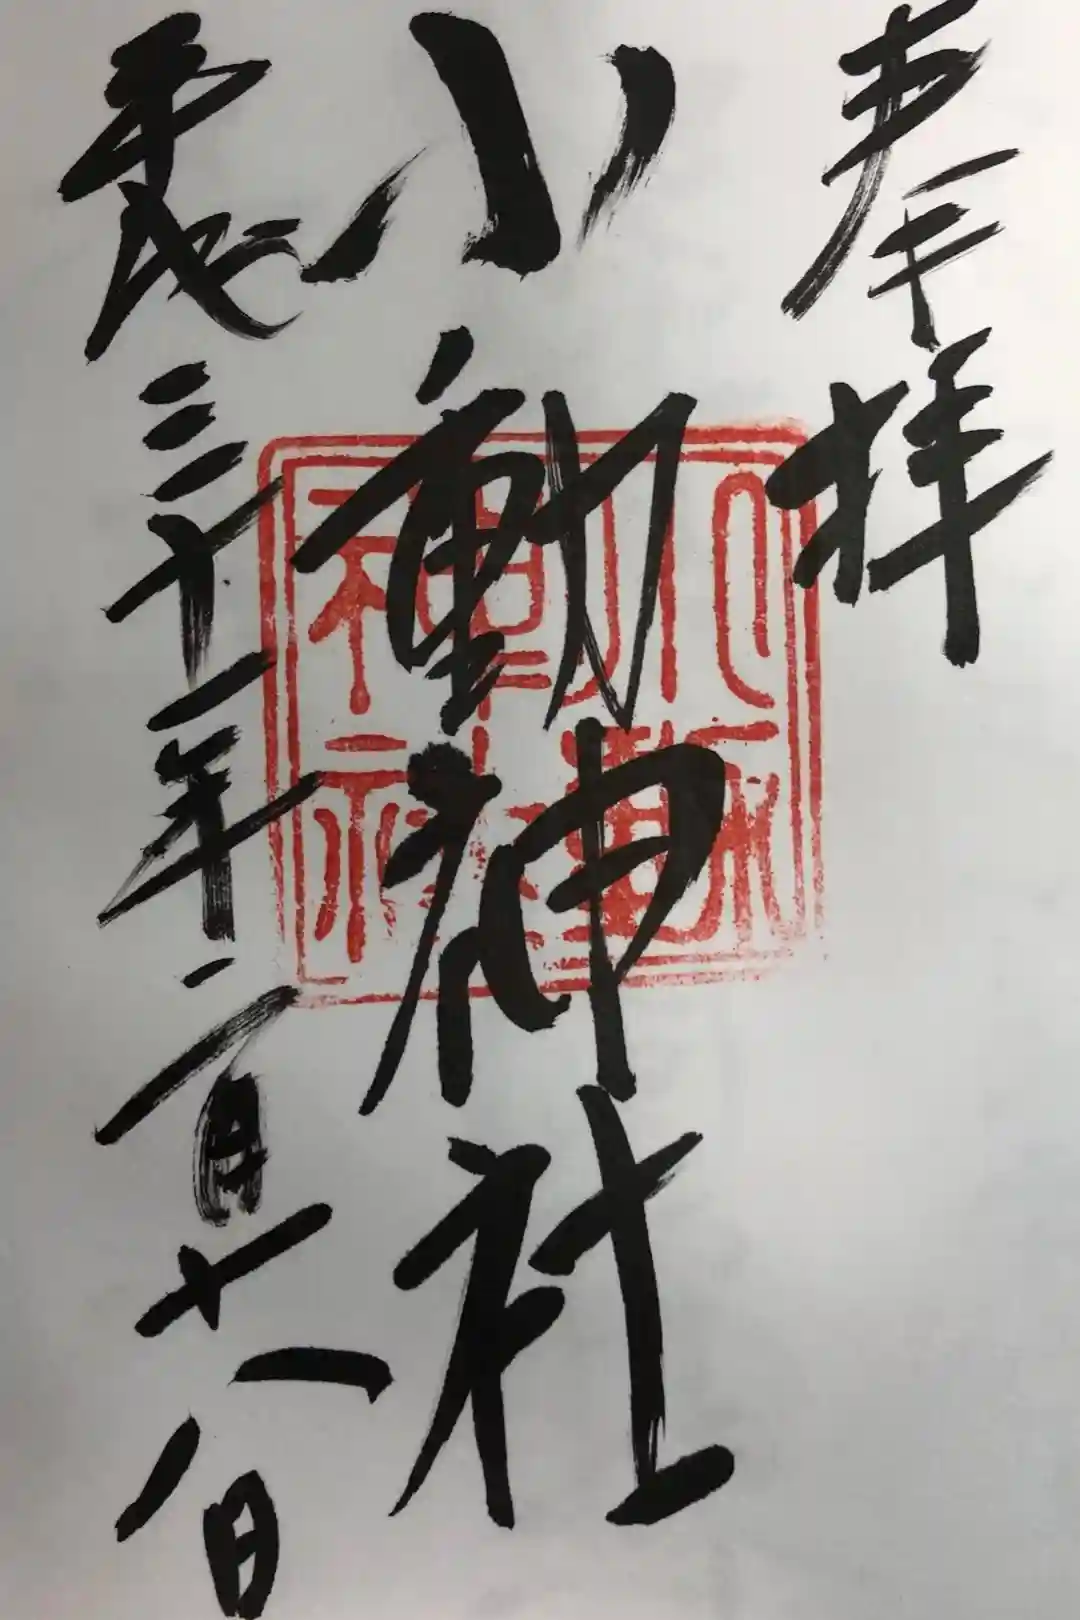 奉拝
小動神社
平成三十一年二月十八日
小動
神社